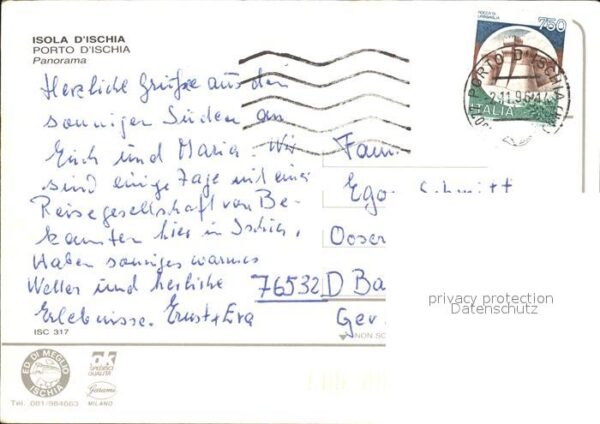 ISOLA D'ISCHIA
PORTO D'ISCHIA
Panorama
Herzliche Grüße aus dem
sonnigen Süden an
Erich und Maria. Wir
sind einige Tage mit einer
Reisegesellschaft von Be-
kannten hier in Ischia,
Haben sonniges warmes
Wetter und herrliche
Erlebnisse. Ernst + Eva
ISC 317
ED. DI MEGLIO
ISCHIA
Tel. 081/984663
OK
SPEDISCI
QUALITÀ
Garami
MILANO
ROCCA DI
URBISAGLIA
750
ITALIA
PORTO D'ISCHIA
Fam
Ego Schmitt
Ooser
76532 D Ba
Ger
NON SC
privacy protection
Datenschutz